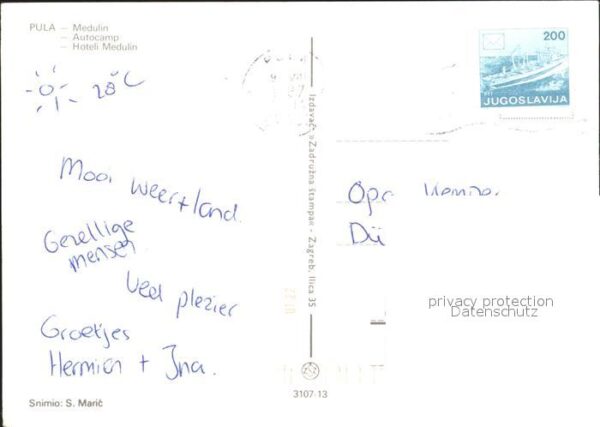 PULA – Medulin
– Autocamp
– Hoteli Medulin
28°C
Mooi weer + land.
Gezellige
mensen.
Veel plezier
Groetjes
Hermien + Ina.
Snimio: S. Marić
Izdavač: »Zadružna štampa« - Zagreb, Ilica 35
3107-13
200
JUGOSLAVIJA
Opa
privacy protection
Datenschutz